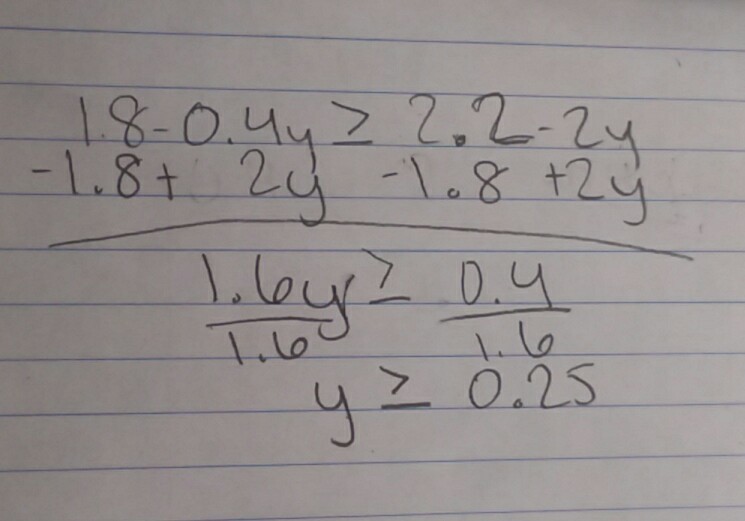 1.8-0.4y ≥ 2.2-2y
-1.8+ 2y -1.8 +2y
1.6y ≥ 0.4
1.6 1.6
y ≥ 0.25